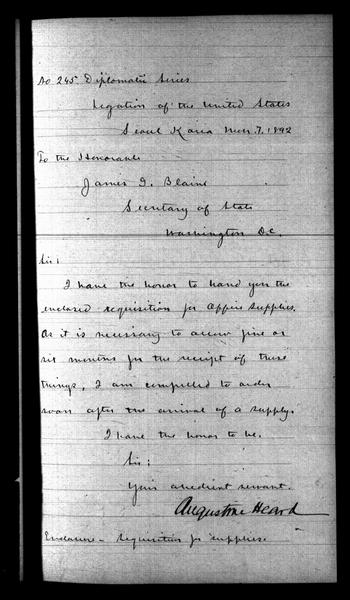 No 245 Diplomatic Series
Legation of the United States
Seoul Korea Mar. 7, 1892
To the Honorable
James G. Blaine
Secretary of State
Washington D.C.
Sir:
I have the honor to hand you the
enclosed requisition for office supplies.
As it is necessary to allow five or
six months for the receipt of these
things, I am compelled to order
soon after the arrival of a supply.
I have the honor to be,
Sir:
Your obedient servant.
Augustine Heard
Enclosure - Requisition for supplies.